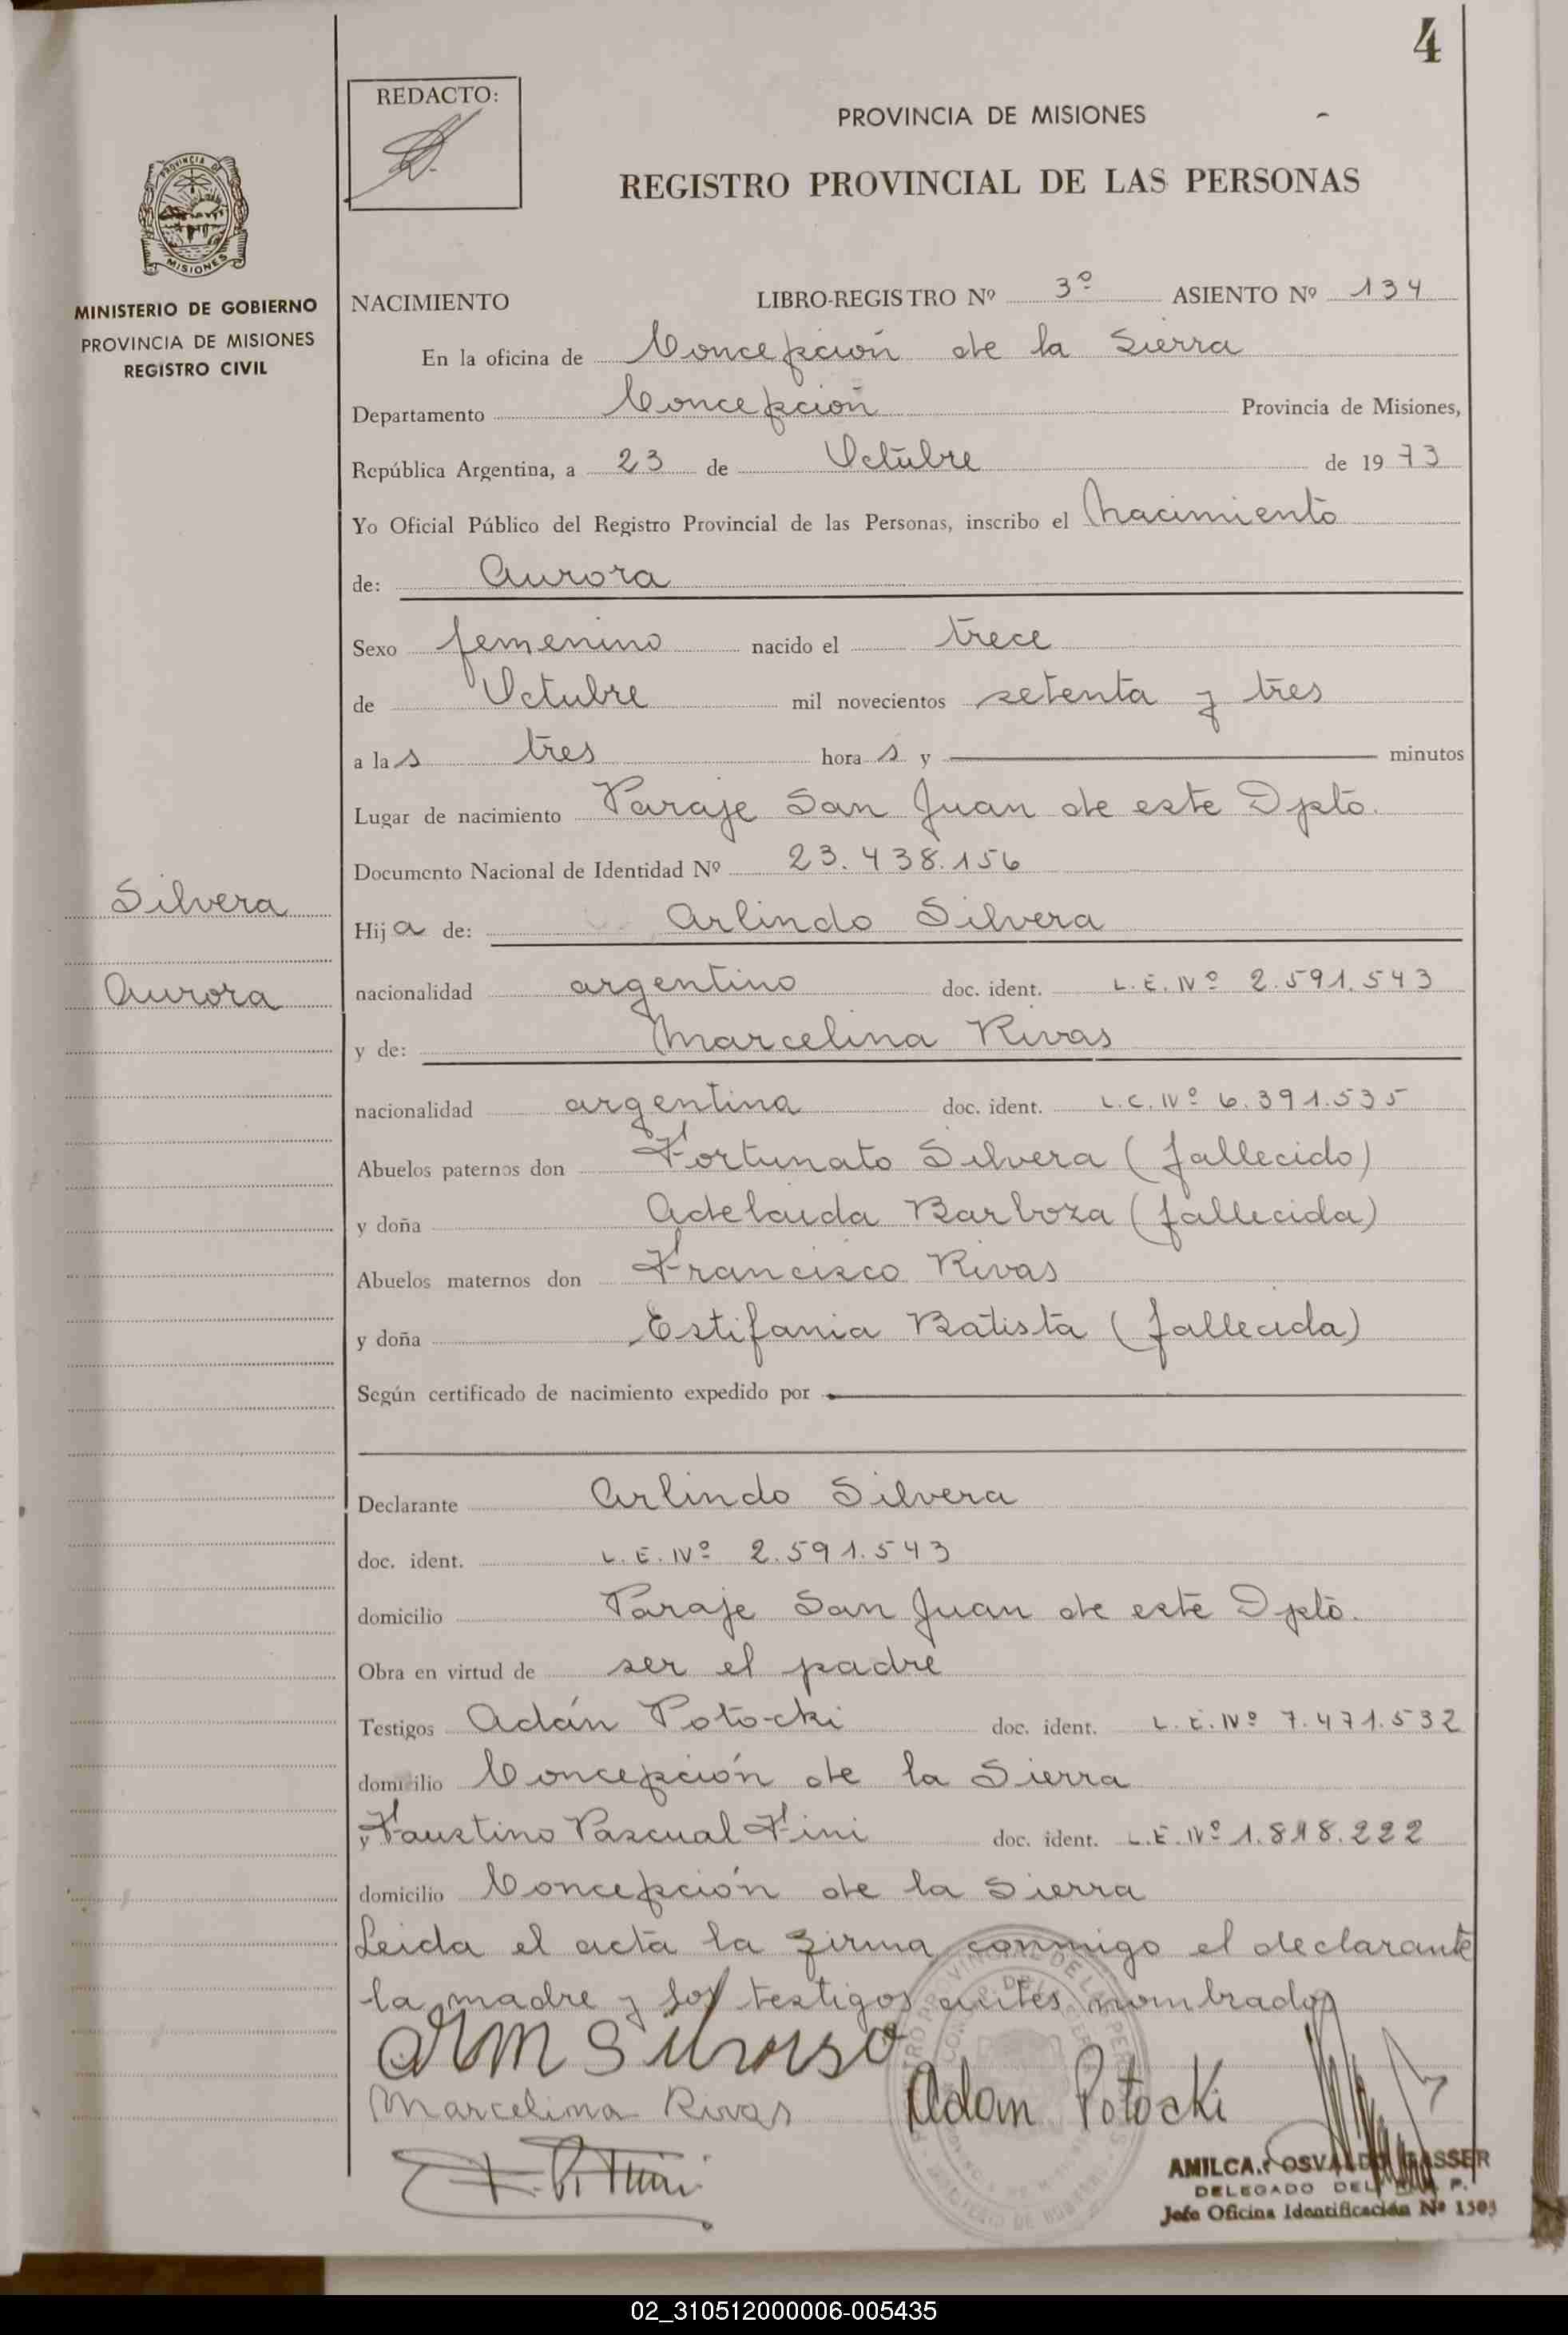 4
REDACTO:
PROVINCIA DE MISIONES
REGISTRO PROVINCIAL DE LAS PERSONAS
PROVINCIA DE
MISIONES
MINISTERIO DE GOBIERNO
PROVINCIA DE MISIONES
REGISTRO CIVIL
NACIMIENTO LIBRO-REGISTRO Nº 3º ASIENTO Nº 134
En la oficina de Concepción de la Sierra
Departamento Concepción Provincia de Misiones,
República Argentina, a 23 de Octubre de 1973
Yo Oficial Público del Registro Provincial de las Personas, inscribo el Nacimiento
de: Aurora
Sexo femenino nacido el trece
de Octubre mil novecientos setenta y tres
a las tres horas y minutos
Lugar de nacimiento Paraje San Juan de este Dpto.
Documento Nacional de Identidad Nº 23.438.156
Silvera
Hija de: Arlindo Silvera
Aurora
nacionalidad argentino doc. ident. L.E. Nº 2.591.543
y de: Marcelina Rivas
nacionalidad argentina doc. ident. L.C. Nº 6.391.535
Abuelos paternos don Fortunato Silvera (fallecido)
y doña Adelaida Barboza (fallecida)
Abuelos maternos don Francisco Rivas
y doña Estifania Batista (fallecida)
Según certificado de nacimiento expedido por
Declarante Arlindo Silvera
doc. ident. L.E. Nº 2.591.543
domicilio Paraje San Juan de este Dpto.
Obra en virtud de ser el padre
Testigos Adán Potocki doc. ident. L.E. Nº 7.471.532
domicilio Concepción de la Sierra
y Faustino Pascual Fini doc. ident. L.E. Nº 1.818.222
domicilio Concepción de la Sierra
Leida el acta la firma conmigo el declarante
la madre y los testigos antes nombrados
Marcelina Rivas Adan Potocki
AMILCAR OSVALDO GASSER
DELEGADO DEL P.
Jefe Oficina Identificación Nº 1503
02_310512000006-005435